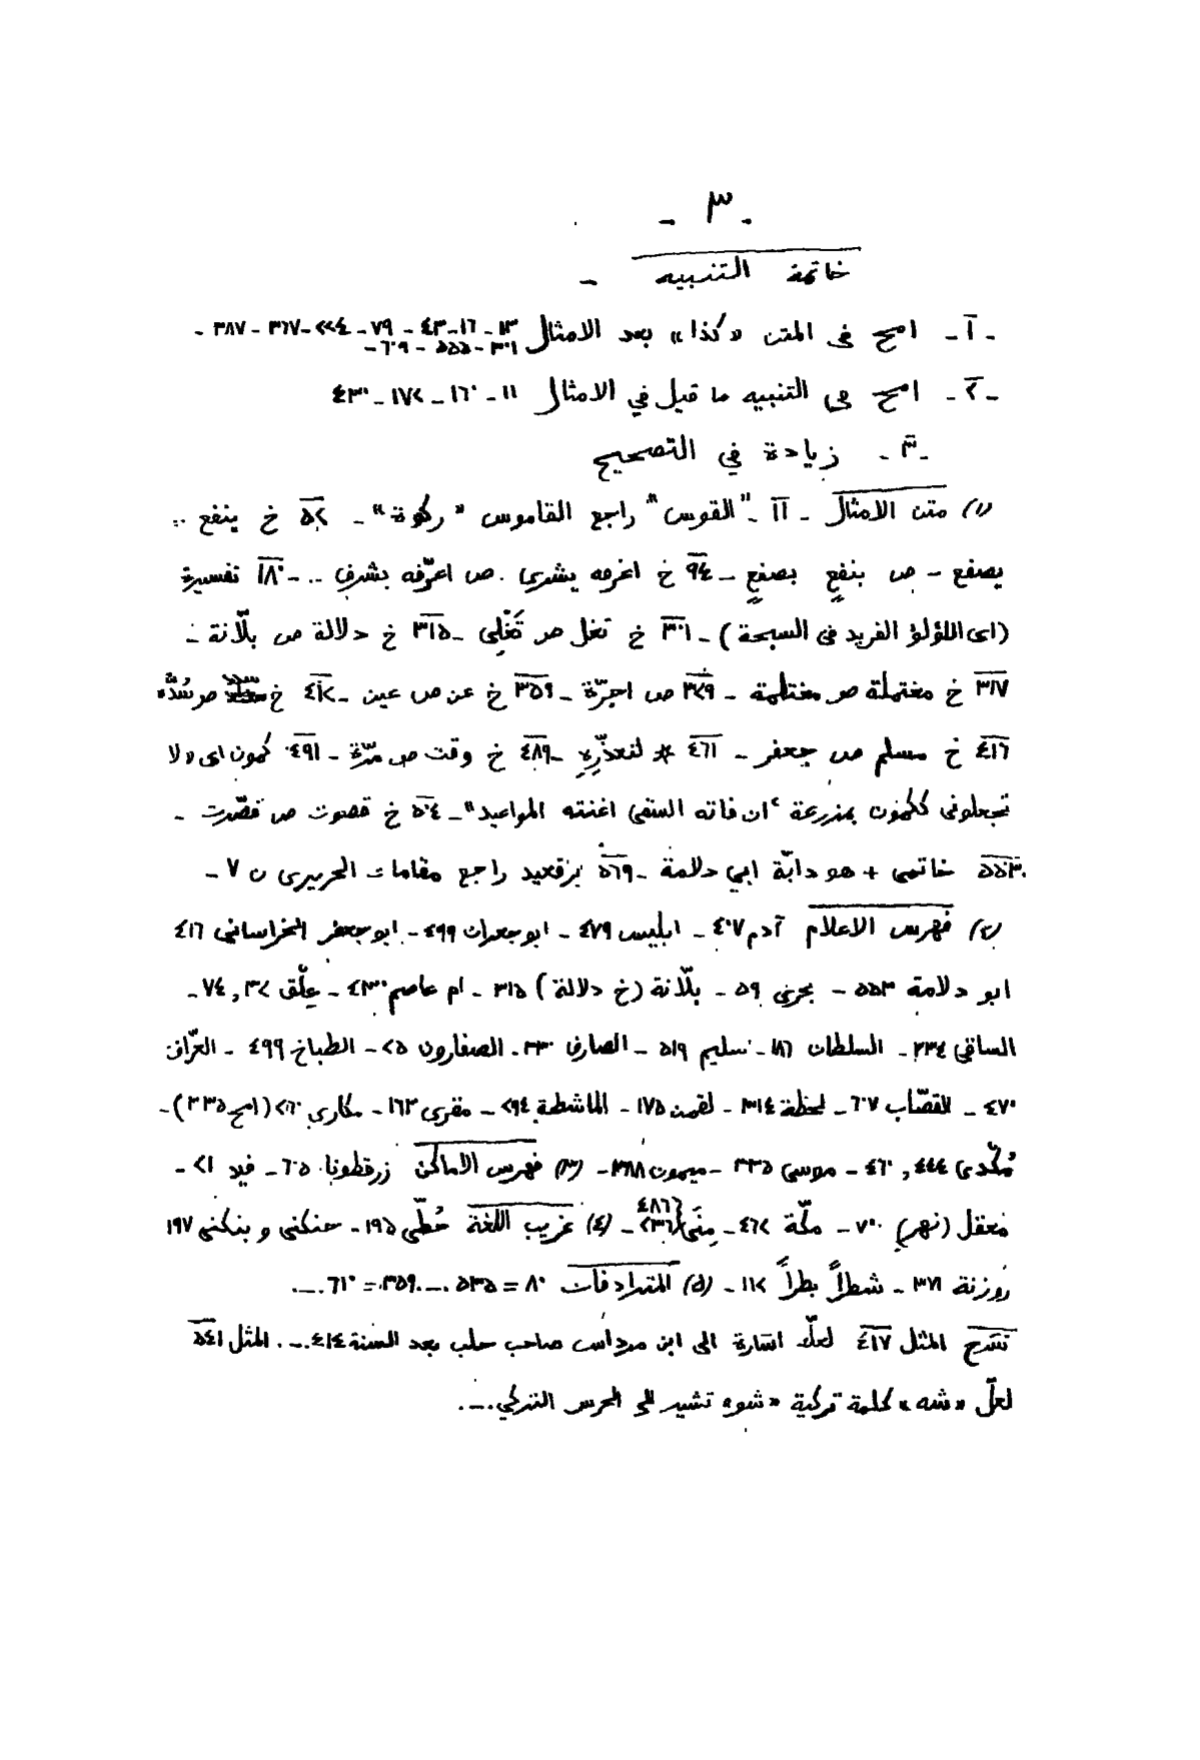 - ٣ -
خاتمة التنبيه -
- ١ - امح فى المتن «كذا» بعد الامثال ١٣ - ١٦ - ٤٣ - ٧٩ - ٢٢٤ - ٣٦٧ - ٣٨٧ -
٣٠١ - ٥٥٥ - ٦٠٩ -
- ٢ - امح فى التنبيه ما قيل في الامثال ١١ - ١٦٠ - ١٧٢ - ٤٣٠
- ٣ - زيادة في التصحيح
(١) متن الامثال - ١١ - "القوس" راجع القاموس "ركوة" - ٥٢ خ ينفع ..
يصفع - ص بنفعٍ بصفعٍ - ٩٤ خ اغرمه يشرى . ص اعرّفه بشرفٍ .. - ١٨٠ تفسيرة
(اى اللؤلؤ الفريد فى السبحة) - ٣٠١ خ تغل ص تَغْلِى - ٣١٥ خ دلالة ص بلّانة -
٣١٧ خ مغتملة ص مغتلمة - ٣٢٩ ص اجرّة - ٣٥٩ خ عن ص عين - ٤١٢ خ ص سُدّة
٤١٦ خ مسلم ص جعفر - ٤٦١ * لتعذّرِهِ - ٤٨٩ خ وقت ص مرّة - ٤٩١ كمون اى «لا
تجعلونى ككمون بمزرعة ان فاته السقى اغنته المواعيد" - ٥٠٤ خ قصوت ص قصّرت -
٥٥٣ خاتمى + هو دابّة ابي دلامة - ٥٦٩ بزقعيد راجع مقامات الحريرى ن ٧ -
(٢) فهرس الاعلام آدم ٤٠٧ - ابليس ٤٧٩ - ابو جعران ٤٩٩ - ابو جعفر الخراسانى ٤١٦
ابو دلامة ٥٥٣ - بحرنى ٥٩ - بلّانة (خ دلالة) ٣١٥ - ام عاصم ٤٣٠ - عِلّق ٣٢, ٧٤ -
الساقى ٢٣٤ - السلطان ١٨٦ - سليم ٥١٩ - الصارف ٣٣٠ - الصفارون ٢٥ - الطباخ ٤٩٩ - العرّاف
٤٧٠ - القصّاب ٦٠٧ - لحظة ٣١٤ - لقمن ١٧٥ - الماشطة ٢٩٤ - مقرى ١٦٣ - مكارى ٢٦٠ (امح ٣٣٥) -
مُكّدى ٤٤٤, ٤٦٠ - موسى ٣٣٥ - ميمون ٣٨٨ - (٣) فهرس الاماكن زرقطونا ٦٠٥ - فيد ٢١ -
معقل (نهر) ٧٠٠ - مكّة ٤٦٢ - مِنَى {٤٨٦ ٢٣٦} - (٤) غريب اللغة حُطّى ١٩٥ - حنكنى و بنكنى ١٩٧
روزنة ٣٧١ - شطراً بطراً ١١٢ - (٥) المترادفات ٨٠ = ٥٣٥ .-. ٣٥٩ = ٦١٠ .-.
شرح المثل ٤١٧ لعلّه اشارة الى ابن مرداس صاحب حلب بعد السنة ٤١٤ .-. المثل ٥٤١
لعلّ «شه» كلمة تركية «شو» تشير الى الحرس التركي .-.